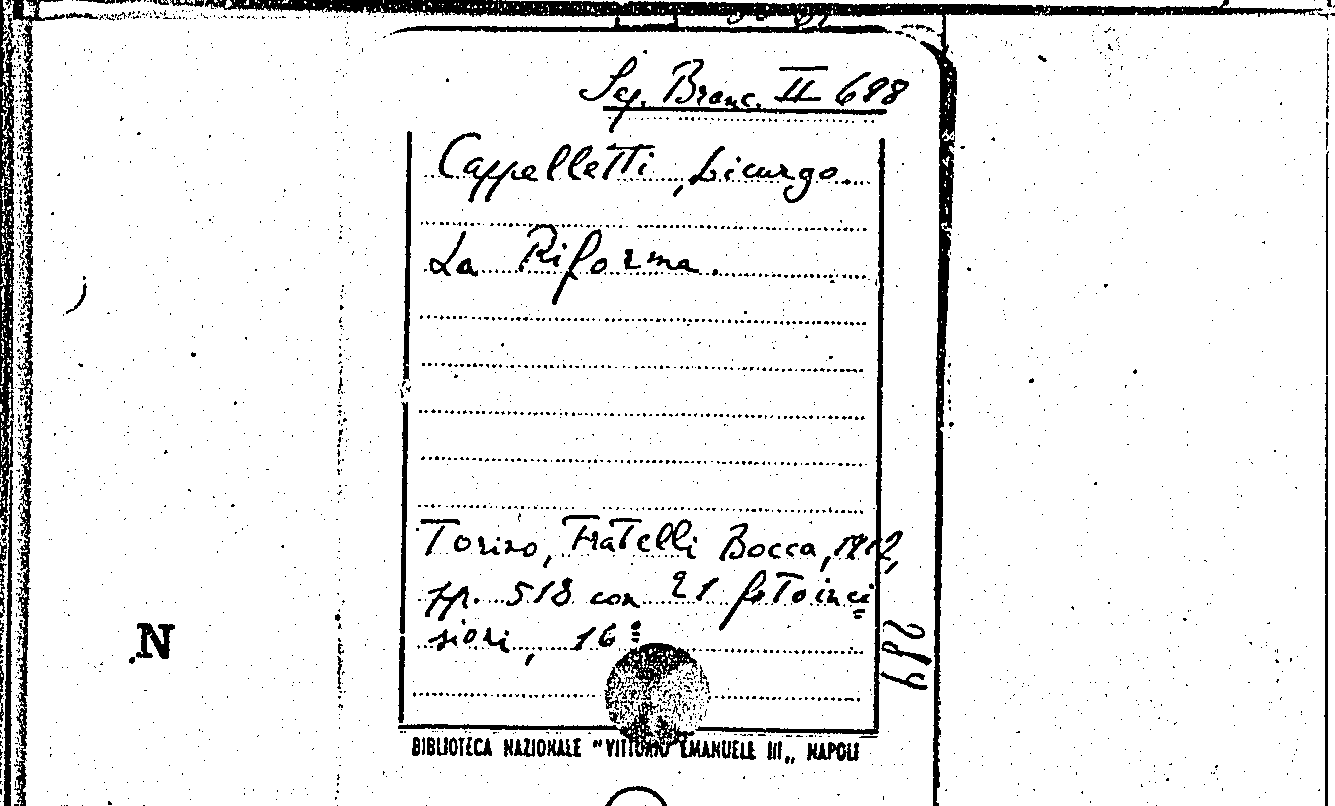 Seg. Branc. II 698
Cappelletti, Licurgo.
La Riforma.
Torino, Fratelli Bocca, 1912,
pp. 518 con 21 fotoinci
sioni, 16º
284
N
BIBLIOTECA NAZIONALE "VITTORIO EMANUELE III„ NAPOLI